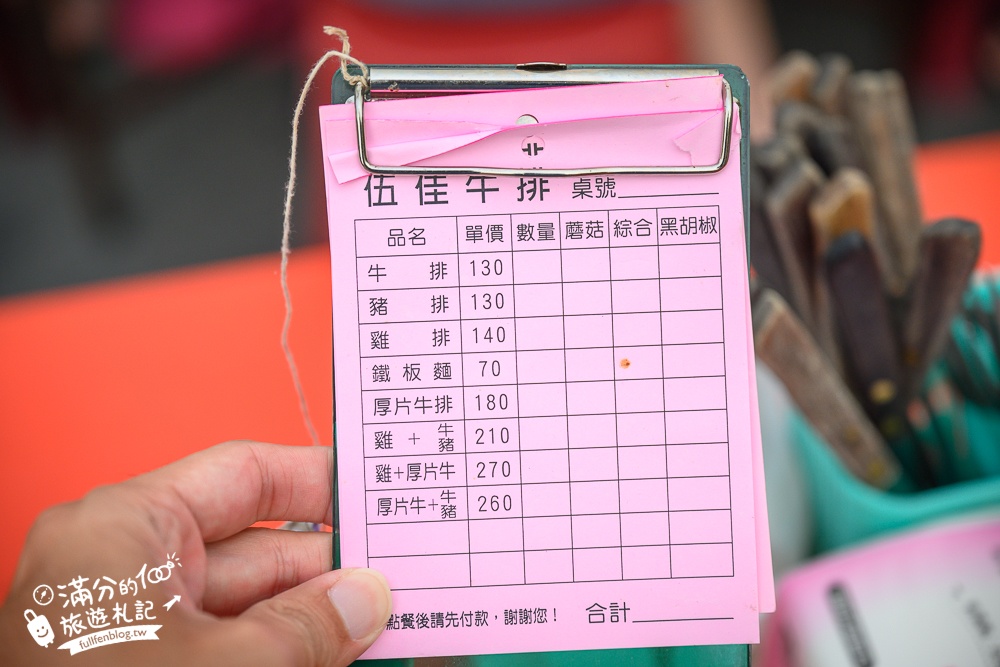 伍佳牛排 桌號
品名 單價 數量 蘑菇 綜合 黑胡椒
牛排 130
豬排 130
雞排 140
鐵板麵 70
厚片牛排 180
雞+牛豬 210
雞+厚片牛 270
厚片牛+牛豬 260
點餐後請先付款,謝謝您! 合計
滿分的
旅遊札記
fullfenblog.tw